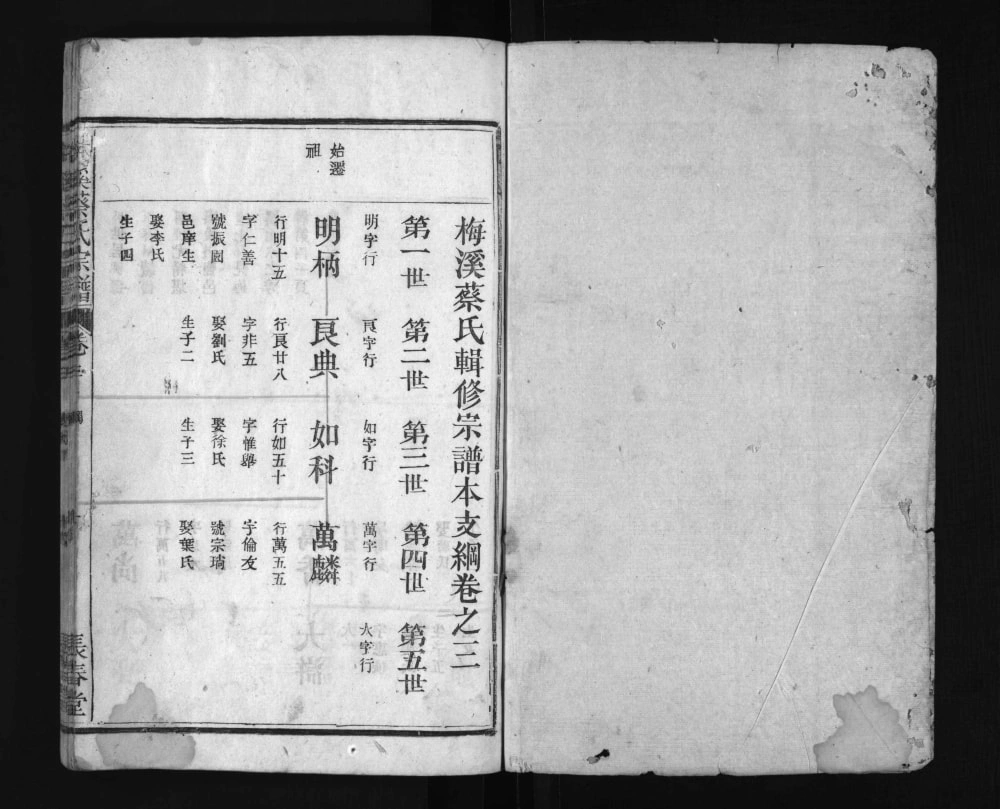 梅溪蔡氏輯修宗譜本支綱卷之三
第一世
第二世
第三世
第四世
第五世
明字行
良字行
如字行
萬字行
大字行
始遷
祖
明柄
行明十五
字仁善
號振園
邑庠生
娶李氏
生子四
良典
行良廿八
字非五
娶劉氏
生子二
如科
行如五十
字惟舉
娶徐氏
生子三
萬麟
行萬五五
字倫友
號宗瑀
娶葉氏
蔡氏宗譜
卷三
長春堂